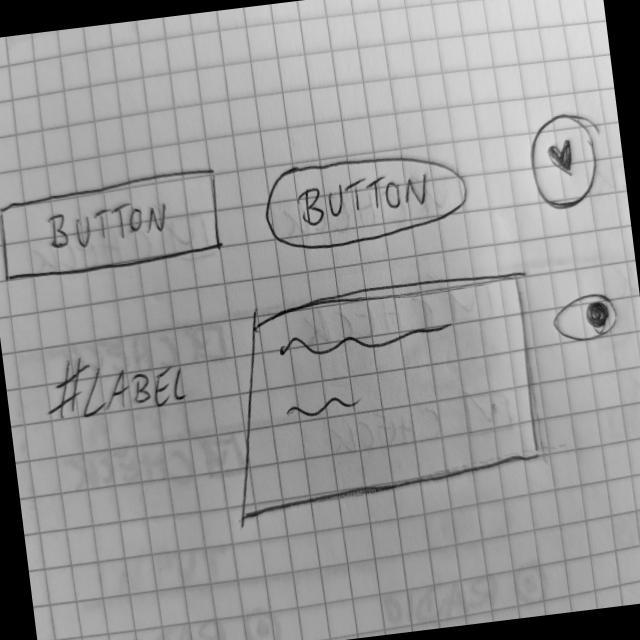 BUTTON
BUTTON
#LABEL